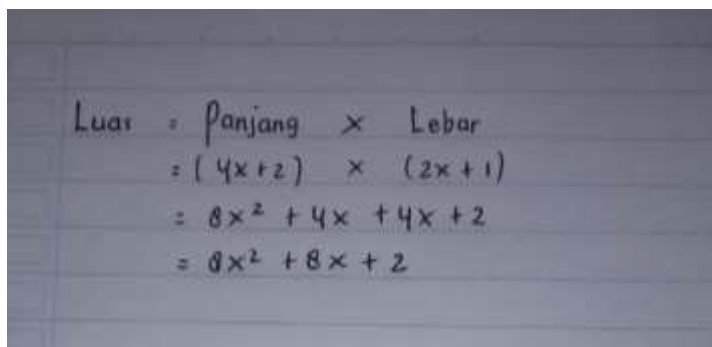 Luas = Panjang × Lebar
= (4x+2) × (2x+1)
= 8x² + 4x + 4x + 2
= 8x² + 8x + 2